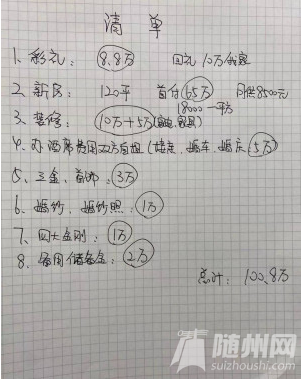 清单
1、彩礼: 8.8万 回礼10万钱塞
2、新房: 120平 首付65万 月供8500元
18000一平方
3、装修: 10万+5万(家电.家具)
4、办酒席费用双方自担(婚车、婚庆5万)
5、三金、首饰: 3万
6、婚纱、婚纱照: 1万
7、四大金刚: 1万
8、备用储备金: 2万
总计: 100.8万
随州网
suizhoushi.com